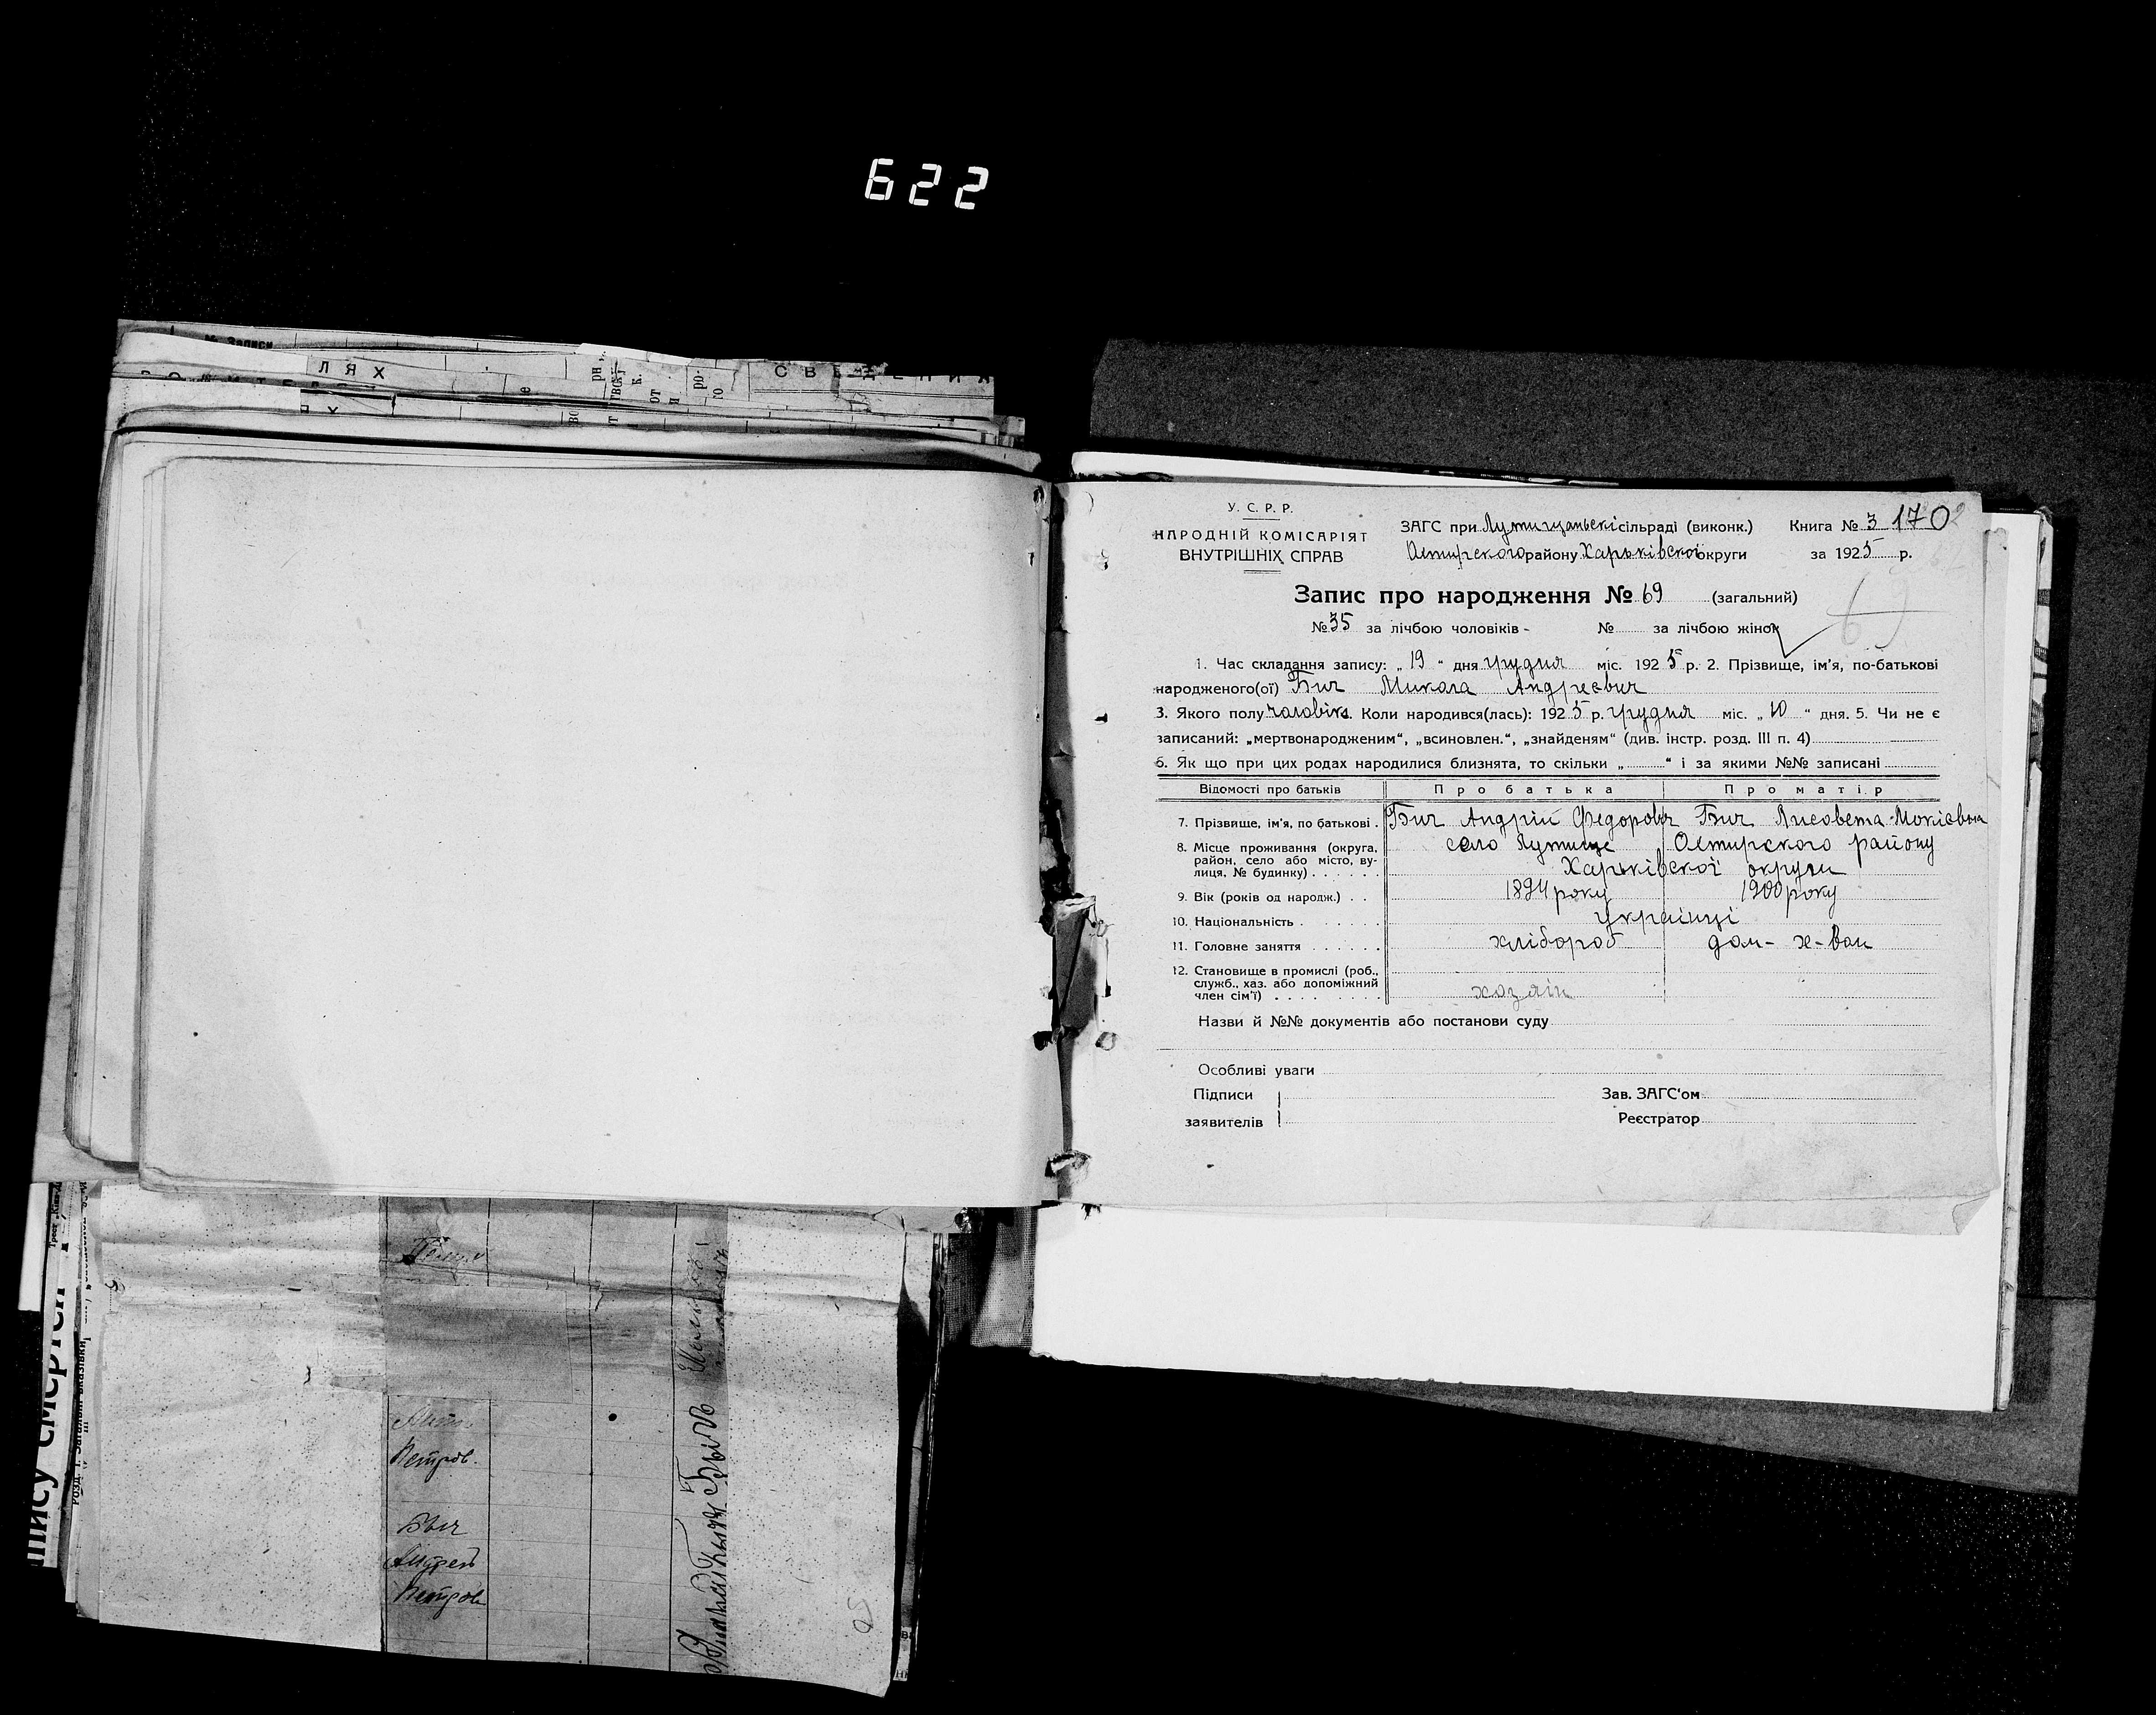 622
м. Записи
ЛЯХ
У. С. Р. Р.
НАРОДНІЙ КОМІСАРІЯТ
ВНУТРІШНІХ СПРАВ
ЗАГС при Лутищанськісільраді (виконк.) Книга № 3 170
Остирскогорайону Харьківскоїокруги за 1925 р.
Запис про народження № 69 (загальний)
69
№ 35 за лічбою чоловіків - № за лічбою жінок
1. Час складання запису: „ 19 “ дня грудня міс. 1925 р. 2. Прізвище, ім'я, по-батькові
народженого(ої) Бич Микола Андрієвич
3. Якого полу чоловіка. Коли народився(лась): 1925 р. грудня міс. „ 10 “ дня. 5. Чи не є
записаний: „мертвонародженим“, „всиновлен.“, „знайденям“ (див. інстр. розд. III п. 4)
6. Як що при цих родах народилися близнята, то скільки „ “ і за якими №№ записані
Відомості про батьків Про батька Про матір
7. Прізвище, ім'я, по батькові . Бич Андрій Федоровіч Бич Лисовета Мокієвна
8. Місце проживання (округа, село Лутище Остирского району
район, село або місто, ву-
лиця, № будинку) . . . . . . Харьківскої округи
9. Вік (років од народж.) . . 1894 року 1900 року
10. Національність . . . . . . українці
11. Головне заняття . . . . . . хлібороб дом- х-вом
12. Становище в промислі (роб.,
служб., хаз. або допоміжний
член сім'ї) . . . . . . . . хозяін
Назви й №№ документів або постанови суду
Особливі уваги
Підписи Зав. ЗАГС'ом
заявителів Реєстратор
Петров.
Быч
Андрей
Петров